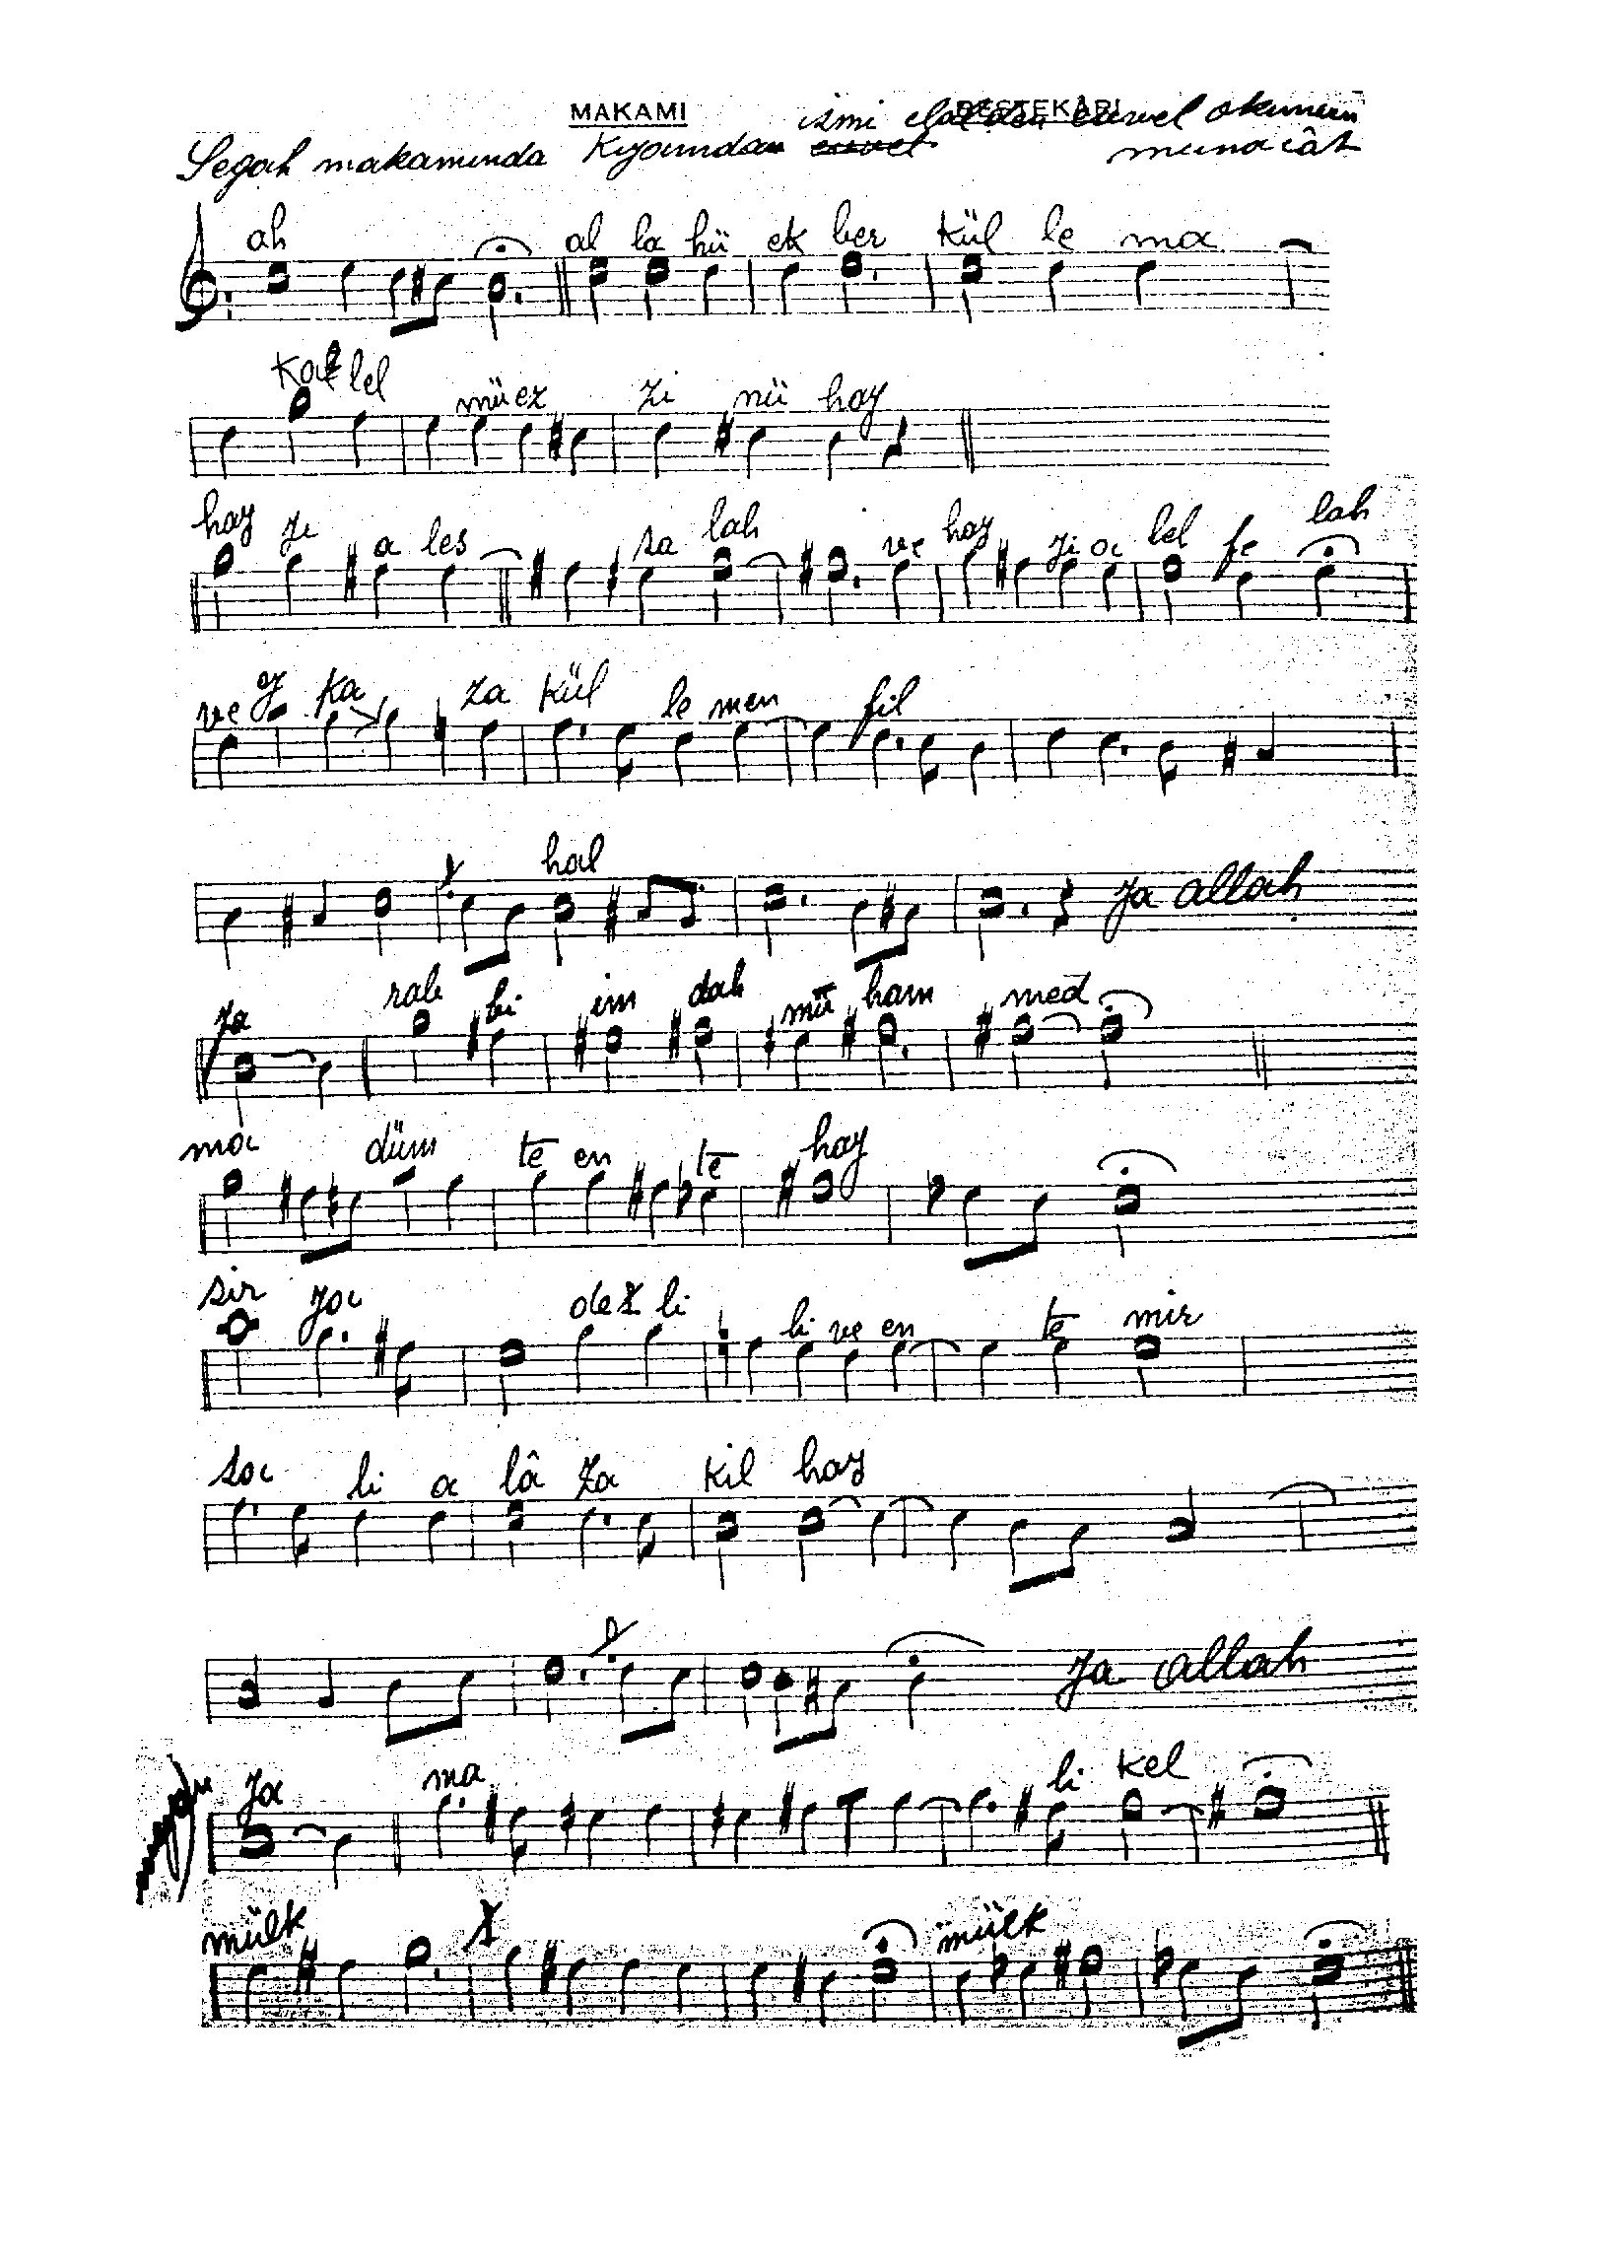 MAKAMI BESTEKÂRI
ismi evvel okunan
Segah makamında Kıyamdan evvel münacât
ah al la hü ek ber kül le ma
Ka lel
müez zi nü hay
hay ye a les sa lah ve hay yi a lel fe lah
ve ey ka za kül le men fil
hal ya allah
ya rab bi im dah mu ham med
ma düm te en te hay
sir ya de li li ve en te mir
sa li a lâ za kil hay
ya allah
ya ma li kel
mülk mülk